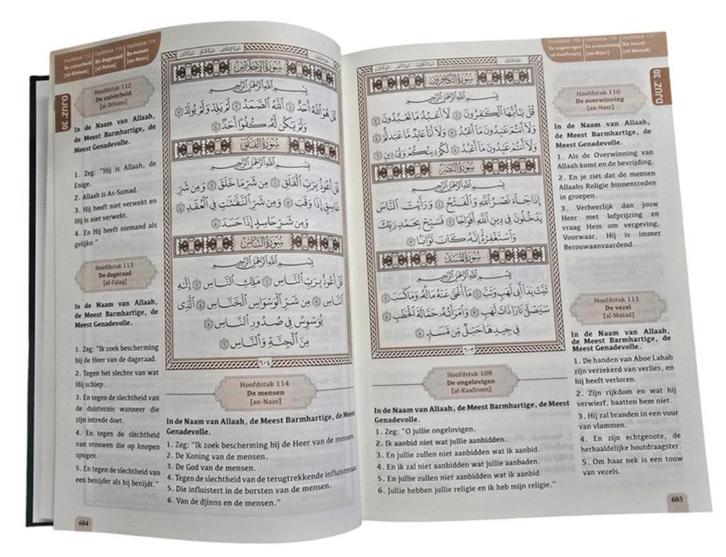 Hoofdstuk 112
De zuiverheid
[al-Ikhlaas]
Hoofdstuk 113
De dageraad
[al-Falaq]
Hoofdstuk 114
De mensen
[an-Naas]
DJUZ' 30
Hoofdstuk 112
De zuiverheid
[al-Ikhlaas]
In de Naam van Allaah,
de Meest Barmhartige, de
Meest Genadevolle.
1. Zeg: "Hij is Allaah, de
Enige.
2. Allaah is As-Samad.
3. Hij heeft niet verwekt en
Hij is niet verwekt.
4. En Hij heeft niemand als
gelijke."
Hoofdstuk 113
De dageraad
[al-Falaq]
In de Naam van Allaah,
de Meest Barmhartige, de
Meest Genadevolle.
1. Zeg: "Ik zoek bescherming
bij de Heer van de dageraad.
2. Tegen het slechte van wat
Hij schiep.
3. En tegen de slechtheid van
de duisternis wanneer die
zijn intrede doet.
4. En tegen de slechtheid
van vrouwen die op knopen
spugen.
5. En tegen de slechtheid van
een benijder als hij benijdt."
سورة الإخلاص
بسم الله الرحمن الرحيم
قل هو الله أحد ١ الله الصمد ٢ لم يلد ولم يولد ٣
ولم يكن له كفوا أحد ٤
سورة الفلق
بسم الله الرحمن الرحيم
قل أعوذ برب الفلق ١ من شر ما خلق ٢ ومن شر
غاسق إذا وقب ٣ ومن شر النفاثات في العقد ٤
ومن شر حاسد إذا حسد ٥
سورة الناس
بسم الله الرحمن الرحيم
قل أعوذ برب الناس ١ ملك الناس ٢ إله
الناس ٣ من شر الوسواس الخناس ٤ الذي
يوسوس في صدور الناس ٥
من الجنة والناس ٦
٦٠٤
Hoofdstuk 114
De mensen
[an-Naas]
In de Naam van Allaah, de Meest Barmhartige, de Meest
Genadevolle.
1. Zeg: "Ik zoek bescherming bij de Heer van de mensen.
2. De Koning van de mensen.
3. De God van de mensen.
4. Tegen de slechtheid van de terugtrekkende influisteraar
5. Die influistert in de borsten van de mensen.
6. Van de djinns en de mensen."
604
Hoofdstuk 109
De ongelovigen
[al-Kaafiroen]
Hoofdstuk 110
De overwinning
[an-Nasr]
Hoofdstuk 111
De vezel
[al-Masad]
DJUZ' 30
سورة الكافرون
بسم الله الرحمن الرحيم
قل يا أيها الكافرون ١ لا أعبد ما تعبدون ٢
ولا أنتم عابدون ما أعبد ٣ ولا أنا عابد ما عبدتم ٤
ولا أنتم عابدون ما أعبد ٥ لكم دينكم ولي دين ٦
سورة النصر
بسم الله الرحمن الرحيم
إذا جاء نصر الله والفتح ١ ورأيت الناس
يدخلون في دين الله أفواجا ٢ فسبح بحمد ربك
واستغفره إنه كان توابا ٣
سورة المسد
بسم الله الرحمن الرحيم
تبت يدا أبي لهب وتب ١ ما أغنى عنه ماله وما كسب ٢
سيصلى نارا ذات لهب ٣ وامرأته حمالة الحطب ٤
في جيدها حبل من مسد ٥
٦٠٣
Hoofdstuk 109
De ongelovigen
[al-Kaafiroen]
In de Naam van Allaah, de Meest Barmhartige, de Meest
Genadevolle.
1. Zeg: "O jullie ongelovigen.
2. Ik aanbid niet wat jullie aanbidden.
3. En jullie zullen niet aanbidden wat ik aanbid.
4. En ik zal niet aanbidden wat jullie aanbaden.
5. En jullie zullen niet aanbidden wat ik aanbid.
6. Jullie hebben jullie religie en ik heb mijn religie."
Hoofdstuk 110
De overwinning
[an-Nasr]
In de Naam van Allaah,
de Meest Barmhartige, de
Meest Genadevolle.
1. Als de Overwinning van
Allaah komt en de bevrijding.
2. En je ziet dat de mensen
Allaahs Religie binnentreden
in groepen.
3. Verheerlijk dan jouw
Heer met lofprijzing en
vraag Hem om vergeving.
Voorwaar, Hij is immer
Berouwaanvaardend.
Hoofdstuk 111
De vezel
[al-Masad]
In de Naam van Allaah,
de Meest Barmhartige, de
Meest Genadevolle.
1. De handen van Aboe Lahab
zijn verzekerd van verlies, en
hij heeft verloren.
2. Zijn rijkdom en wat hij
verwierf, baatten hem niet.
3. Hij zal branden in een vuur
van vlammen.
4. En zijn echtgenote, de
herhaaldelijke houtdraagster.
5. Om haar nek is een touw
van vezels.
603